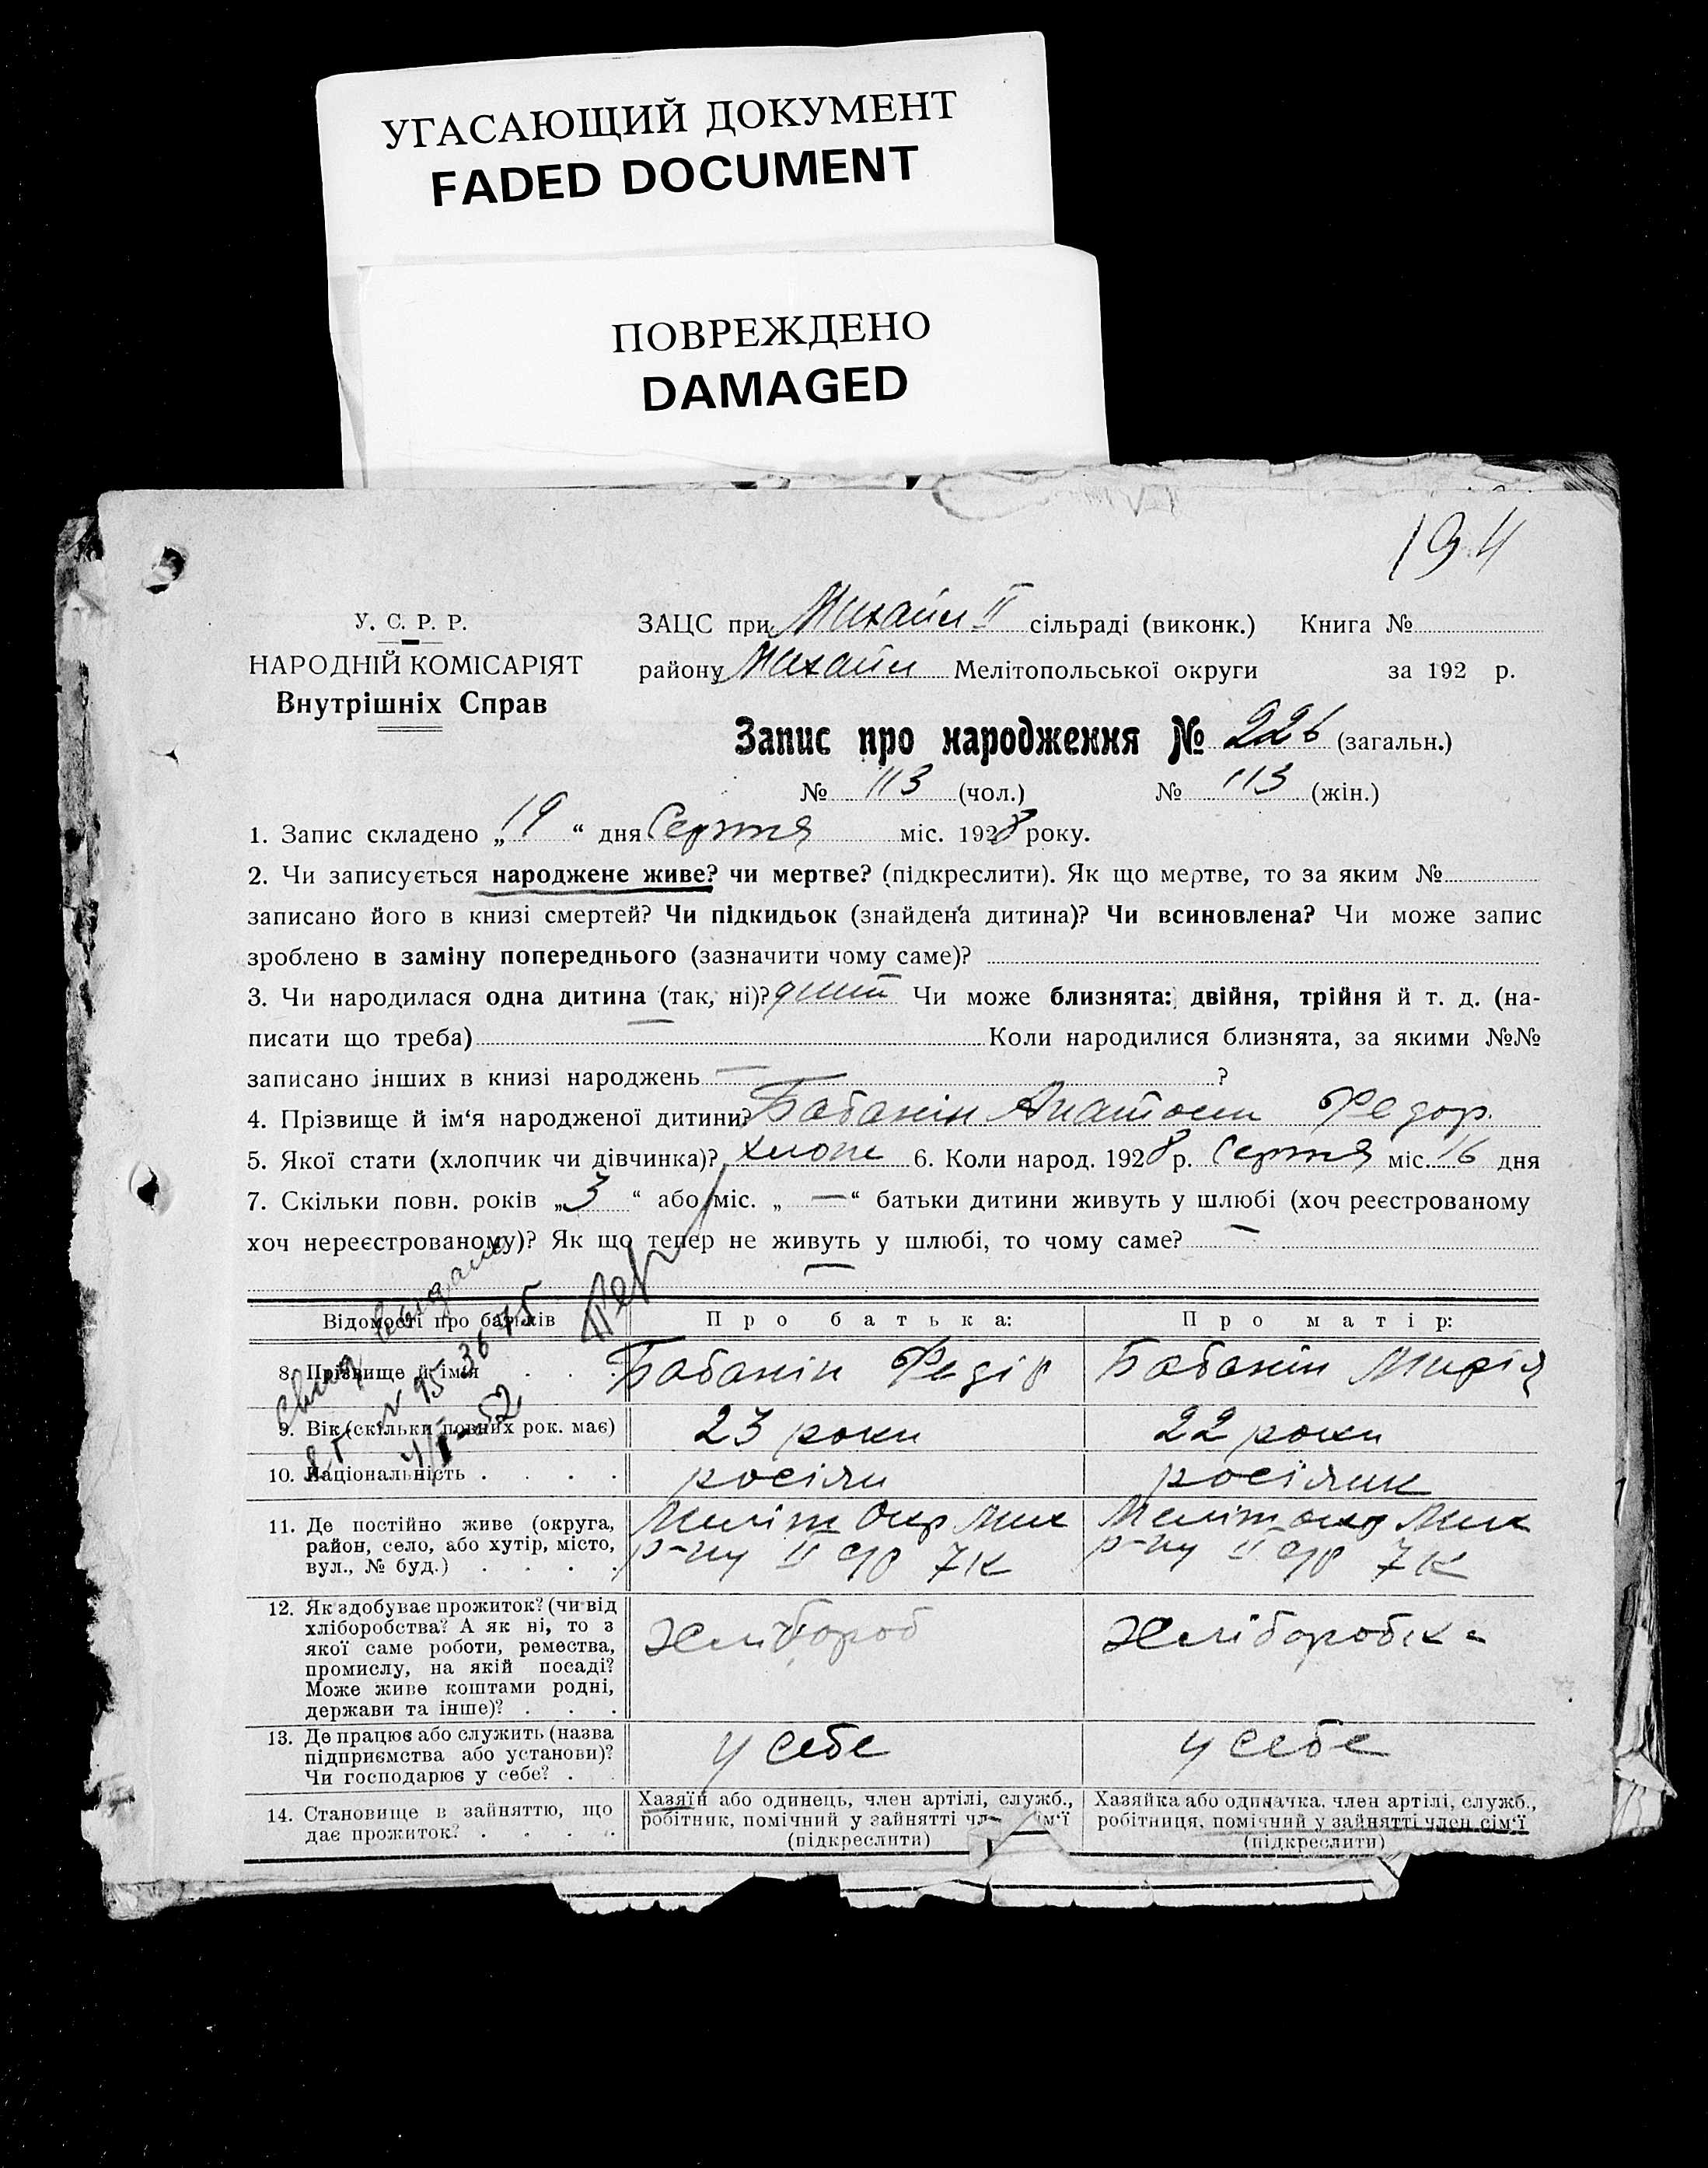 УГАСАЮЩИЙ ДОКУМЕНТ
FADED DOCUMENT
ПОВРЕЖДЕНО
DAMAGED
194
У. С. Р. Р.
НАРОДНІЙ КОМІСАРІЯТ
Внутрішніх Справ
ЗАЦС при Михайл II сільраді (виконк.) Книга №
району Михайл Мелітопольської округи за 192 р.
Запис про народження № 226 (загальн.)
№ 113 (чол.) № 113 (жін.)
1. Запис складено „19“ дня Серпня міс. 1928 року.
2. Чи записується народжене живе? чи мертве? (підкреслити). Як що мертве, то за яким №
записано його в книзі смертей? Чи підкидьок (знайдена дитина)? Чи всиновлена? Чи може запис
зроблено в заміну попереднього (зазначити чому саме)?
3. Чи народилася одна дитина (так, ні)? Чи може близнята: двійня, трійня й т. д. (на-
писати що треба) Коли народилися близнята, за якими №№
записано інших в книзі народжень — ?
4. Прізвище й ім‘я народженої дитини? Бабанін Анатоли Федор.
5. Якої стати (хлопчик чи дівчинка)? хлопч 6. Коли народ. 1928 р. Серпня міс. 16 дня
7. Скільки повн. років „3“ або міс. „—“ батьки дитини живуть у шлюбі (хоч реєстрованому
хоч нереєстрованому)? Як що тепер не живуть у шлюбі, то чому саме? —
Відомості про батьків Про батька: Про матір:
8. Прізвище й ім‘я . . . Бабанін Федір Бабанін Марія
9. Вік (скільки повних рок. має) 23 роки 22 роки
10. Національність . . . . росіян росіянк
11. Де постійно живе (округа, Меліт Окр Мих Меліт окр Мих
район, село, або хутір, місто, р-ну II с/р 7 к р-ну II с/р 7 к
вул., № буд.) . . . .
12. Як здобуває прожиток? (чи від
хліборобства? А як ні, то з Хлібороб Хліборобка
якої саме роботи, ремества,
промислу, на якій посаді?
Може живе коштами родні,
держави та інше)? . . .
13. Де працює або служить (назва
підприємства або установи)? у себе у себе
Чи господарює у себе? .
14. Становище в зайняттю, що Хазяїн або одинець, член артілі, служб., Хазяйка або одиначка, член артілі, служб.,
дає прожиток? . . . . робітник, помічний у зайнятті чл м‘ї робітниця, помічний у зайнятті член сім‘ї
(підкреслити) (підкреслити)